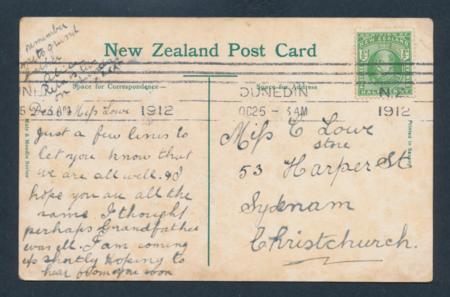 remember
New Zealand Post Card
NEW ZEALAND
HALF
Space for Correspondence
Space for Address
DUNEDIN N.Z
OC25 - 3 AM
1912
1912
Dear Miss Lowe
Just a few lines to
let you know that
we are all well. & I
hope you are all the
same I thought
perhaps Grandfather
was ill. I am coming
up shortly hoping to
hear from you soon
Miss C Lowe
store
53 Harper St
Sydenam
Christchurch.